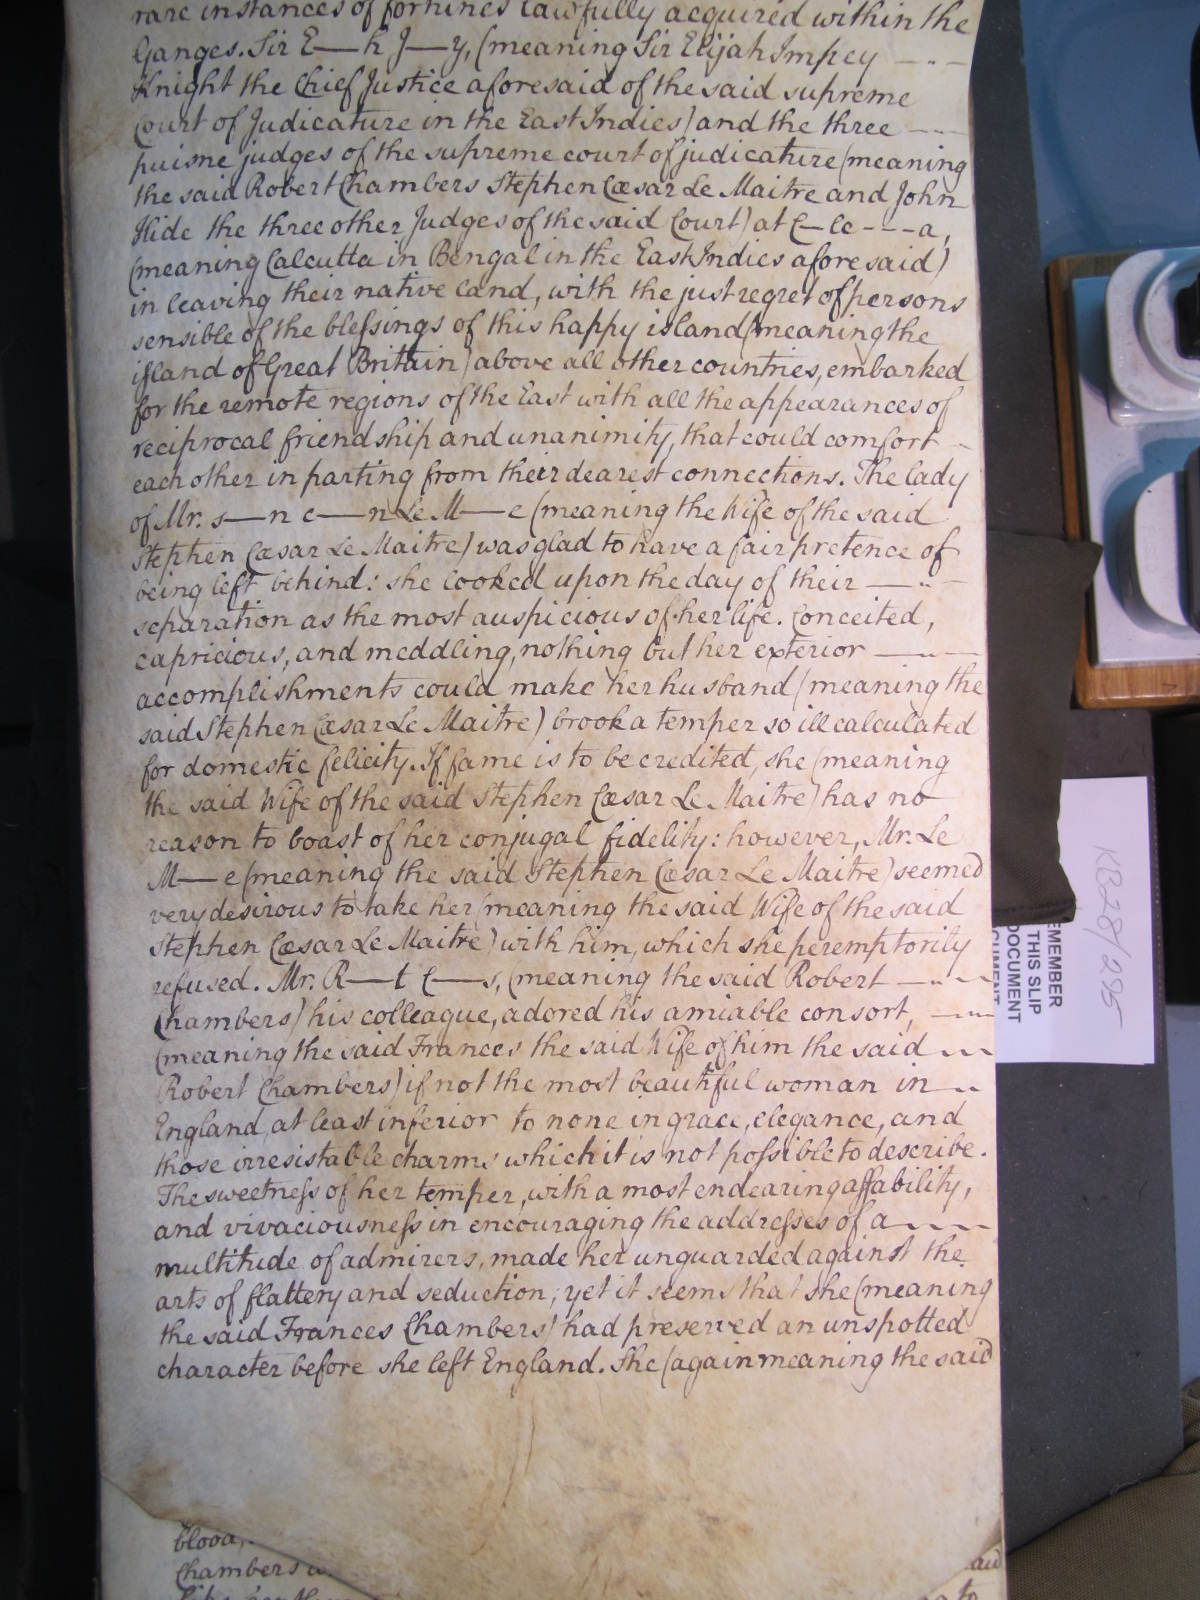 rare instances of fortunes lawfully acquired within the
Ganges. Sir E—h J—y, (meaning Sir Elijah Impey — - —
Knight the Chief Justice aforesaid of the said supreme
Court of Judicature in the East Indies) and the three — - —
puisne judges of the supreme court of judicature (meaning
the said Robert Chambers Stephen Cæsar Le Maitre and John
Hide the three other Judges of the said Court) at C—lc - - - a,
(meaning Calcutta in Bengal in the East Indies aforesaid)
in leaving their native land, with the just regret of persons
sensible of the bleſsings of this happy island (meaning the
iſland of Great Britain) above all other countries, embarked
for the remote regions of the East with all the appearances of
reciprocal friendship and unanimity, that could comfort -
each other in parting from their dearest connections. The lady
of Mr. s—n c—n Le M—e (meaning the Wife of the said
Stephen Cæsar Le Maitre) was glad to have a fair pretence of
being left behind: she looked upon the day of their — - —
separation as the most auspicious of her life. Conceited,
capricious, and meddling, nothing but her exterior — - —
accomplishments could make her husband (meaning the
said Stephen Cæsar Le Maitre) brook a temper so ill calculated
for domestic felicity. If fame is to be credited, she (meaning
the said Wife of the said Stephen Cæsar Le Maitre) has no
reason to boast of her conjugal fidelity: however, Mr. Le
M—e (meaning the said Stephen Cæsar Le Maitre) seemed
very desirous to take her (meaning the said Wife of the said
Stephen Cæsar Le Maitre) with him, which she peremptorily
refused. Mr. R—t C—s, (meaning the said Robert — - ~
Chambers) his colleague, adored his amiable consort, — - —
(meaning the said Frances the said Wife of him the said ~ ~
Robert Chambers) if not the most beautiful woman in — ~
England, at least inferior to none in grace, elegance, and
those irresistable charms which it is not poſsible to describe.
The sweetneſs of her temper, with a most endearing affability,
and vivaciousneſs in encouraging the addreſses of a ~ ~ ~ ~
multitude of admirers, made her unguarded against the
arts of flattery and seduction; yet it seems that she (meaning
the said Frances Chambers) had preserved an unspotted
character before she left England. She (again meaning the said
blood,
Chambers
aid
to
KB28/295
EMEMBER
THIS SLIP
DOCUMENT